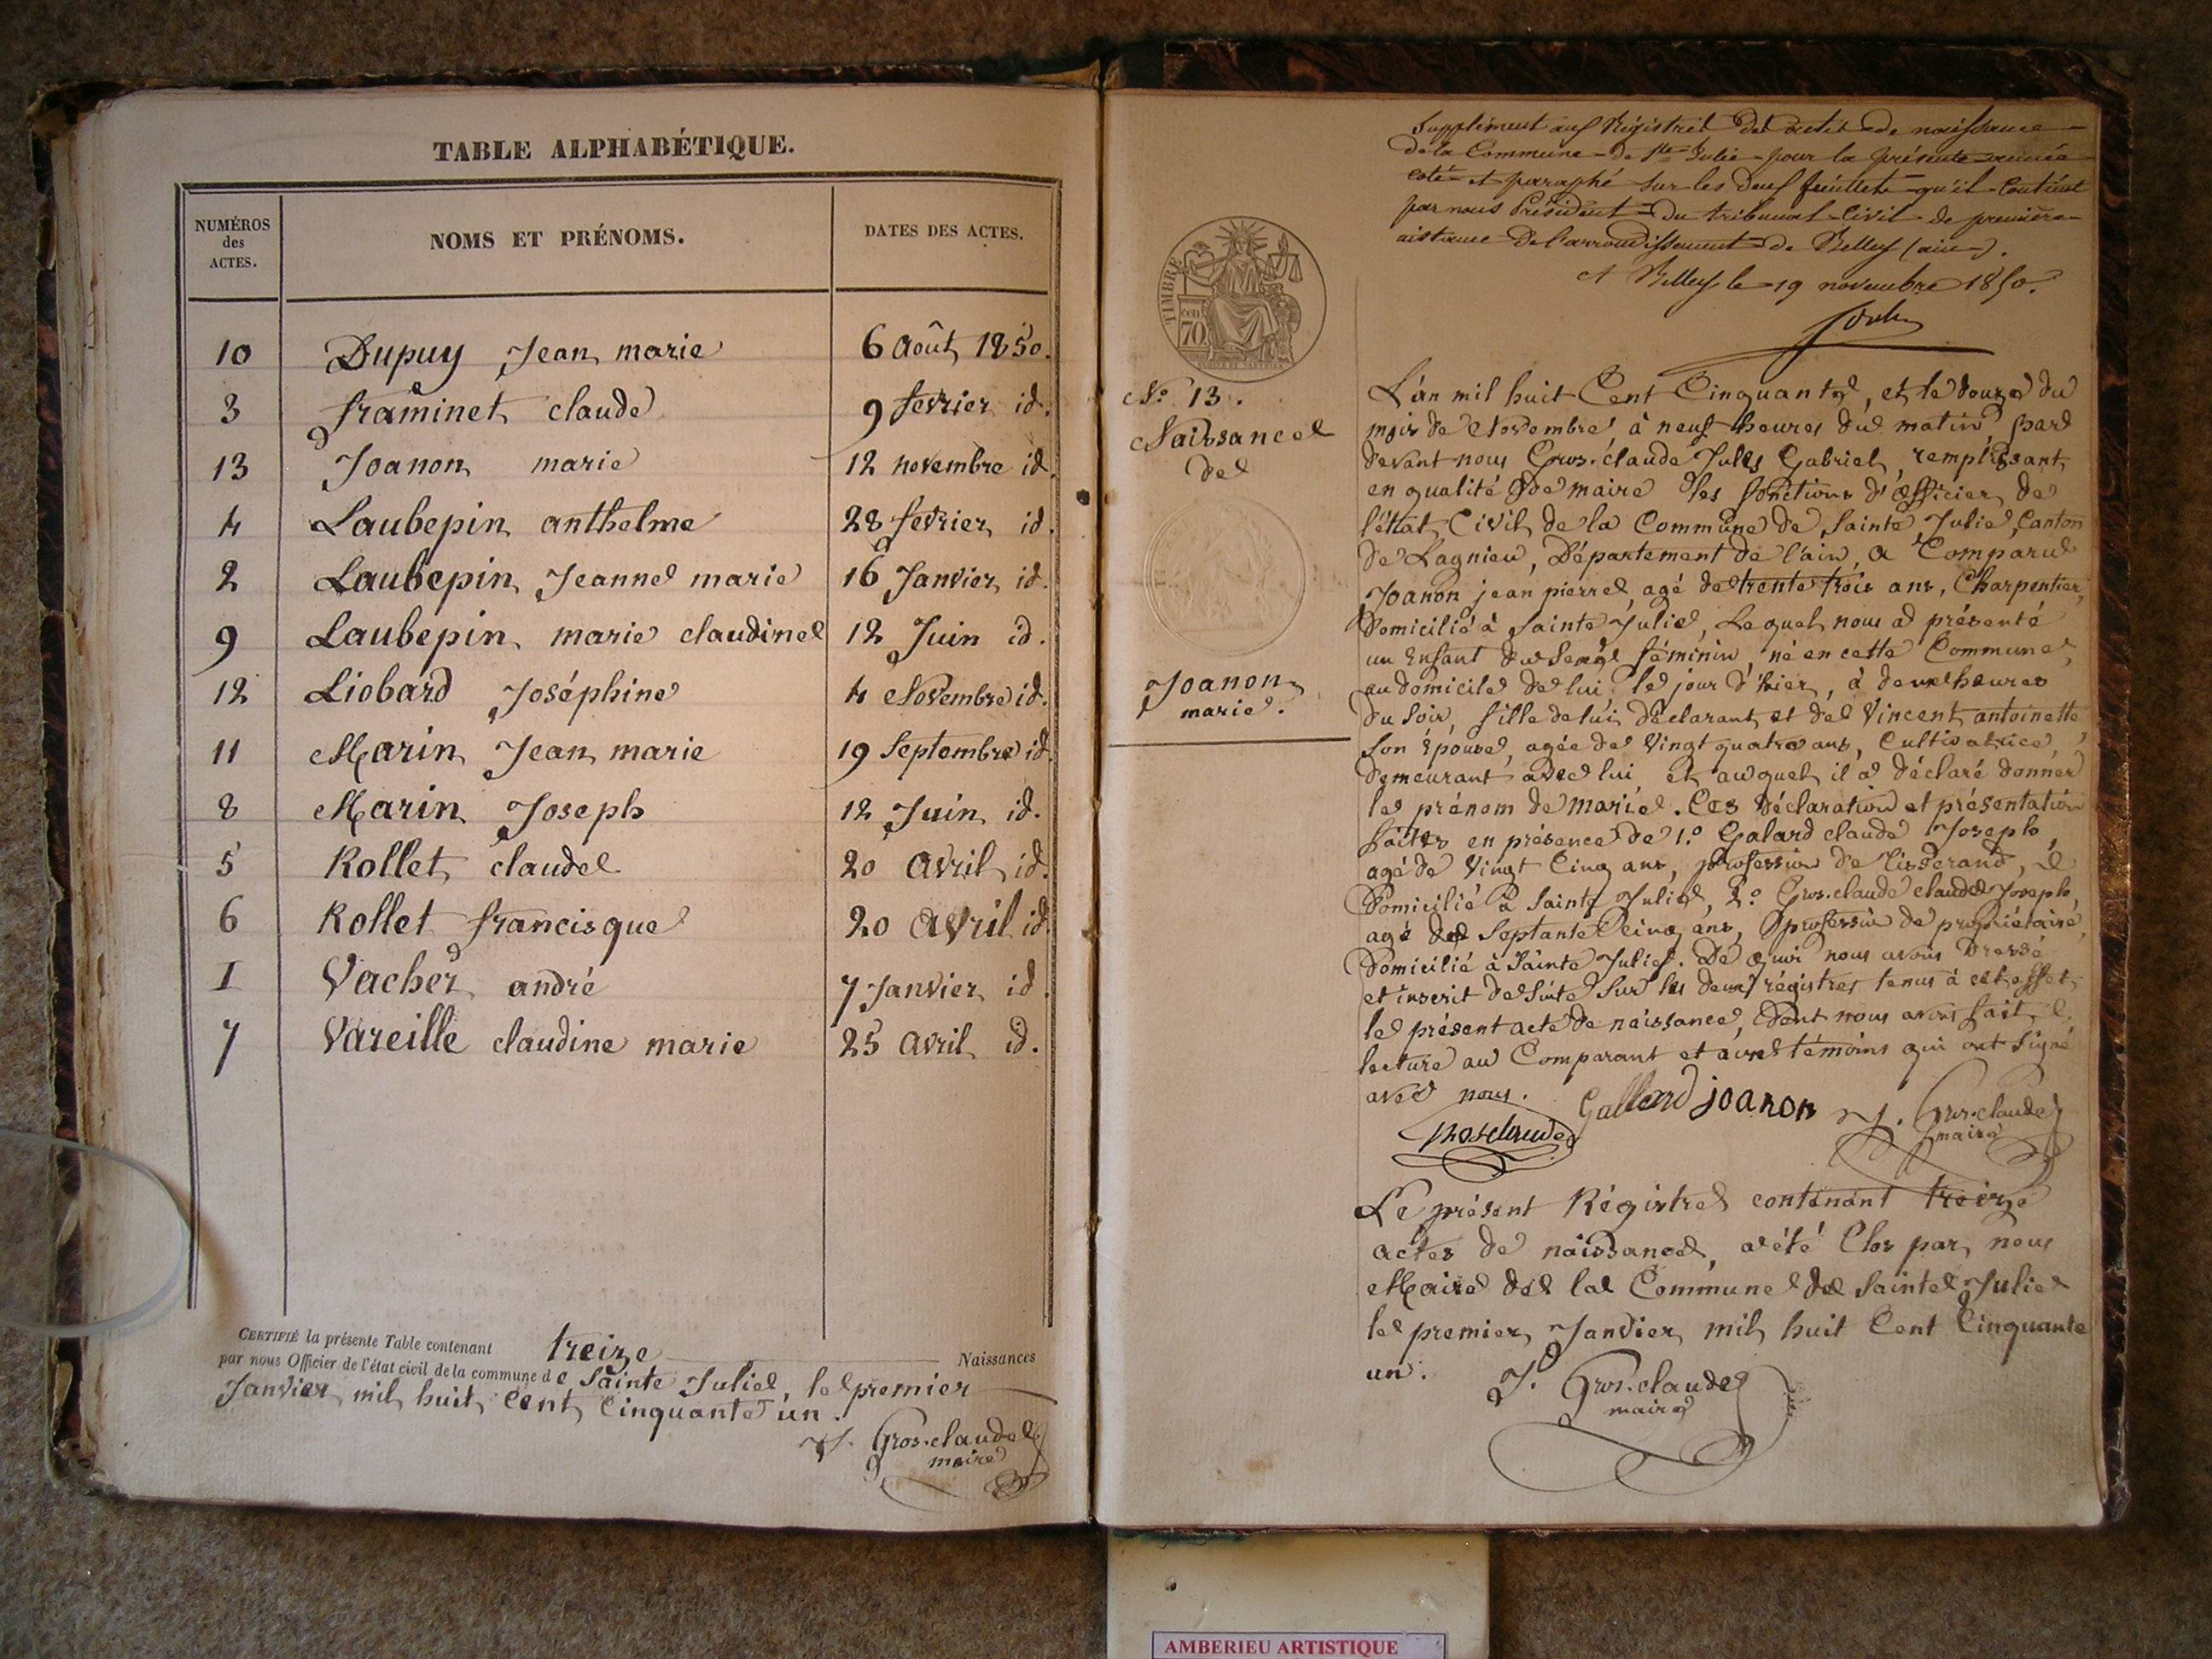 TABLE ALPHABÉTIQUE.
NUMÉROS des ACTES.
NOMS ET PRÉNOMS.
DATES DES ACTES.
10 Dupuy Jean marie 6 Août 1850.
3 framinet claude 9 fevrier id.
13 Joanon marie 12 novembre id.
4 Laubepin anthelme 28 fevrier id.
2 Laubepin Jeanne marie 16 Janvier id.
9 Laubepin marie claudine 12 Juin id.
12 Liobard Joséphine 4 Novembre id.
11 Marin Jean marie 19 Septembre id.
8 Marin Joseph 12 Juin id.
5 Rollet claude 20 avril id.
6 Rollet francisque 20 avril id.
1 Vacher andré 7 Janvier id.
7 Vareille claudine marie 25 avril id.
CERTIFIÉ la présente Table contenant treize Naissances
par nous Officier de l'état civil de la commune de Sainte Julie, le premier
Janvier mil huit cent cinquante un.
J. Gros-claude
maire
Supplément aux Régistres des actes de naissance
de la Commune de Ste Julie pour la présente année
coté et paraphé sur les deux feuillets qu'il contient
par nous Président du tribunal Civil de première
instance de l'arrondissement de Belley (ain).
A Belley le 19 novembre 1850.
TIMBRE
70
No. 13.
Naissance
de
Joanon
marie.
L'an mil huit Cent Cinquante, et le douze du
mois de Novembre à neuf heures du matin, par
devant nous Gros-claude Jules Gabriel, remplissant
en qualité de maire les fonctions d'officier de
l'état Civil de la Commune de Sainte Julie, Canton
de Lagnieu, Département de l'ain, a Comparu
Joanon jean pierre, agé de trente trois ans, Charpentier,
domicilié à Sainte Julie, Lequel nous a présenté
un Enfant du Sexe féminin, né en cette Commune,
au domicile de lui, le jour d'hier, à deux heures
du Soir, fille de lui déclarant et de Vincent antoinette
Son Épouse, agée de Vingt quatre ans, Cultivatrice,
demeurant avec lui, et auquel il a déclaré donner
le prénom de marie. Ces déclaration et présentation
faites en présence de 1.o Galard claude Joseph,
agé de Vingt Cinq ans, profession de tisserand,
domicilié à Sainte Julie, 2.o Gros-claude claude Joseph,
agé de Septante Cinq ans, profession de propriétaire,
domicilié à Sainte Julie. De quoi nous avons dressé
et inscrit de suite Sur les deux régistres tenus à cet effet,
le présent acte de naissance, dont nous avons fait
lecture au Comparant et aux témoins qui ont Signé
avec nous.
Gallard joanon J. Gros-claude
maire
Grosclaude
Le présent Régistre contenant treize
actes de naissance, a été Clos par nous
Maire de la Commune de Sainte Julie
le premier Janvier mil huit Cent Cinquante
un.
J. Gros-claude
maire
AMBERIEU ARTISTIQUE